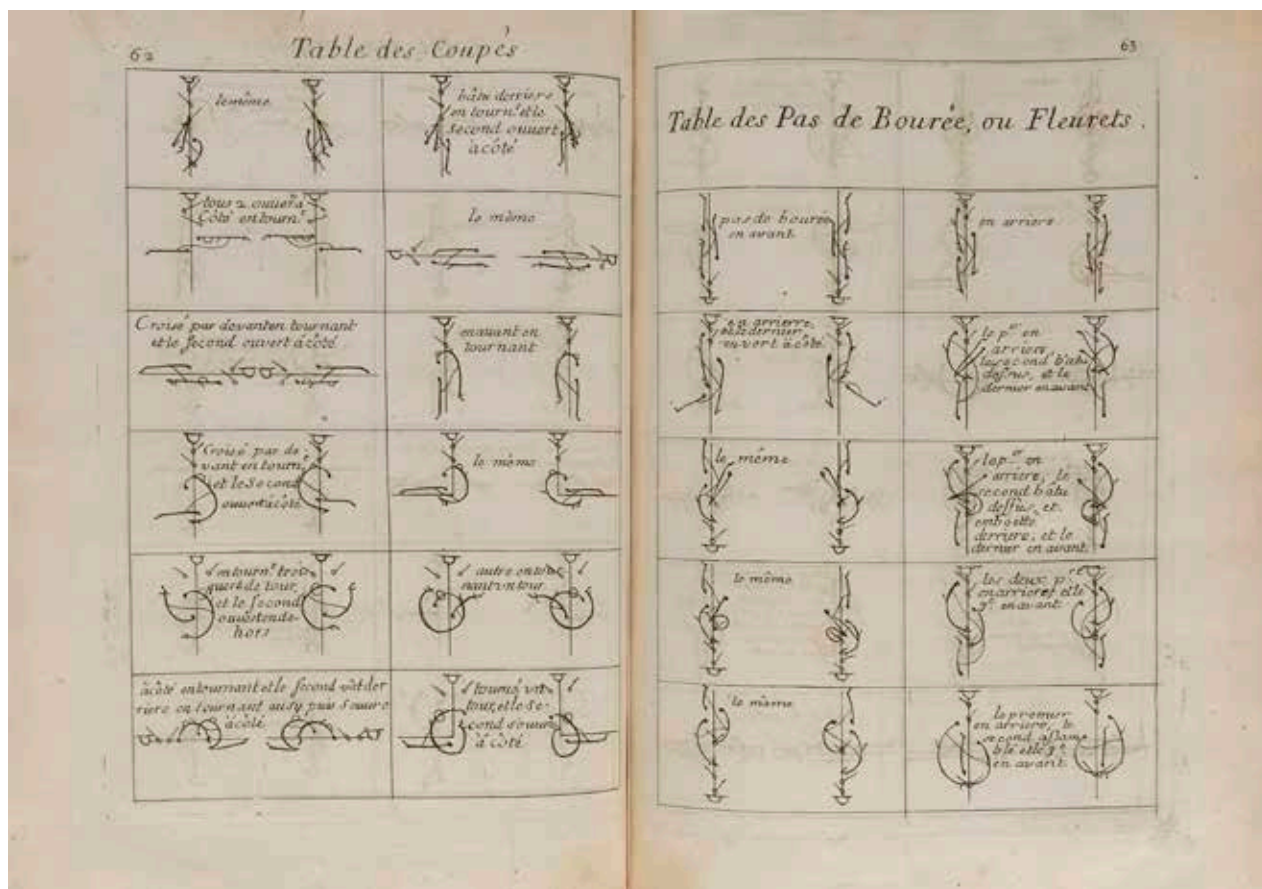 62
Table des Coupés
le même
bâtu derriere
en tourn.t et le
second ouvert
à côté
tous 2 ouverts
Côté en tourn.t
le même
Croisé par devant en tournant
et le second ouvert à côté
en avant en
tournant
Croisé par de
vant en tourn.t
et le second
ouvert à côté
le même
en tourn.t trois
quart de tour,
et le second
ouvert en de
hors
autre en tour
nant un tour
à côté en tournant et le second
riere en tournant aussy puis s'ouvre
à côté
tourné un
tour, et le se
cond s'ouvre
à côté
63
Table des Pas de Bourée, ou Fleurets.
pas de bourée
en avant
en arriere
en arriere,
et le dernier
ouvert à côté
le p.er en
arriere,
le second bâtu
dessus, et le
dernier en avant
le même
le p.er en
arriere, le
second bâtu
dessus, et
emboitte
derriere, et le
dernier en avant.
le même
les deux p.rs
en arriere et le
3.e en avant
le même
le premier
en arriere, le
second assam
blé et le 3.e
en avant